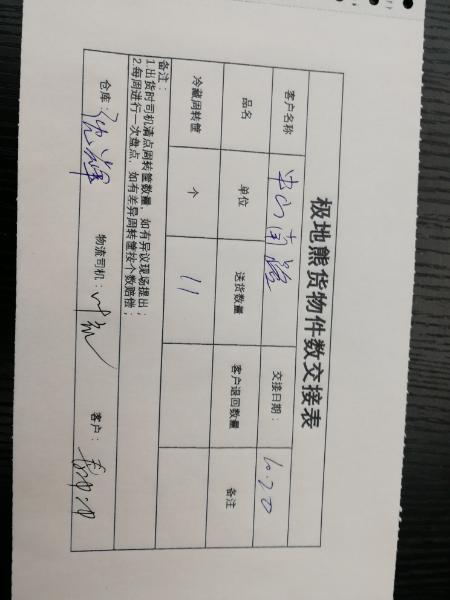 极地熊货物件数交接表
客户名称 中山南路 交接日期： 10.20
品名 单位 送货数量 客户退回数量 备注
冷藏周转筐 个 11
备注：
1.出货时司机清点周转筐数量，如有异议现场提出；
2.每周进行一次盘点，如有差异周转筐按个数赔偿；
仓库： 物流司机： 客户：